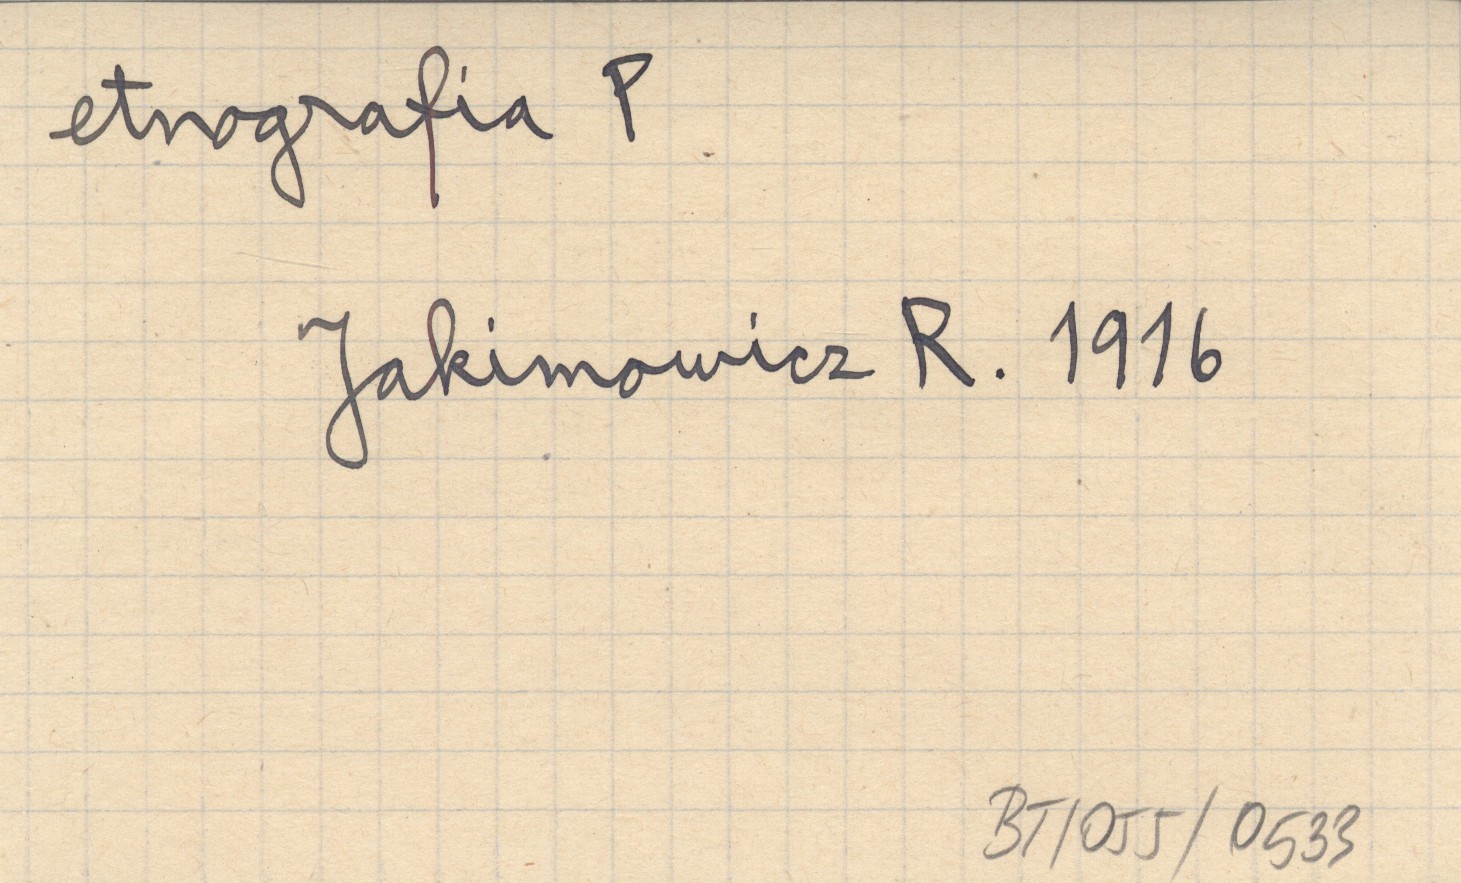 etnografia P
Jakimowicz R. 1916
BT/055/0533